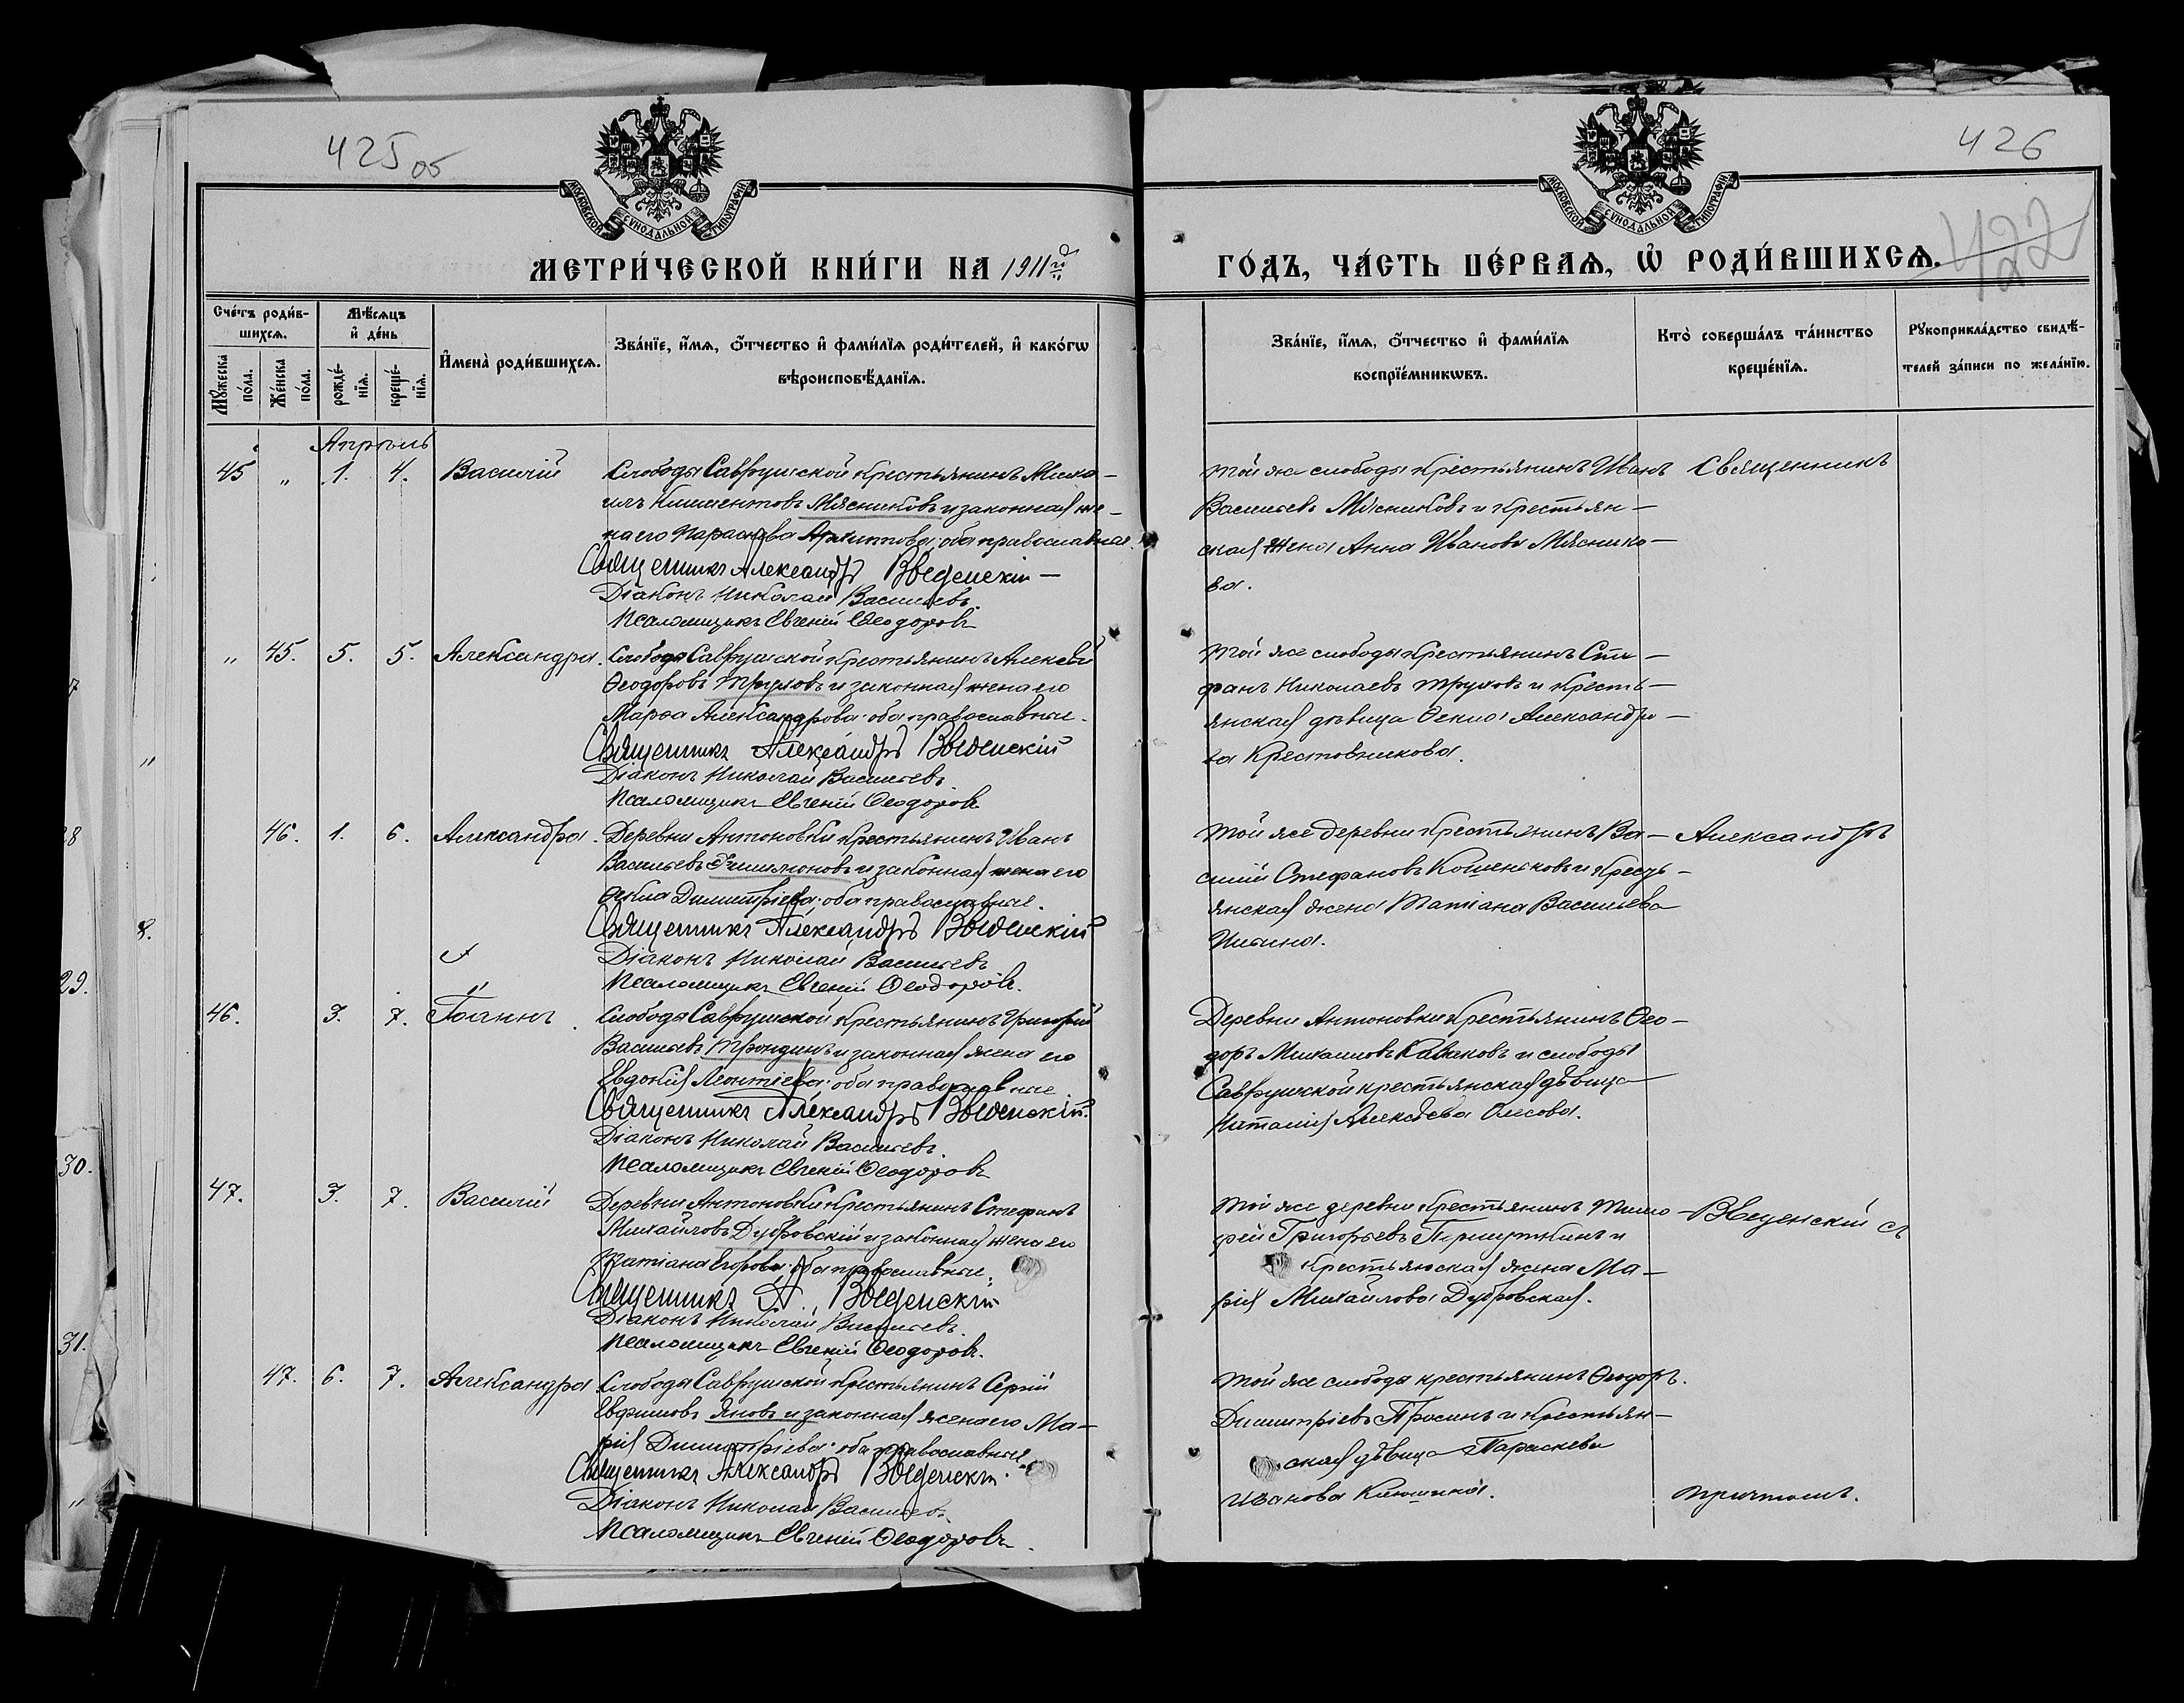 425 об
426
422
МОСКОВСКОЙ СѴНОДАЛЬНОЙ ТИПОГРАФІИ
МОСКОВСКОЙ СѴНОДАЛЬНОЙ ТИПОГРАФІИ
МЕТРИ́ЧЕСКОЙ КНИ́ГИ НА 1911й
ГО́ДЪ, ЧА́СТЬ ПЕ́РВАѦ, Ѡ҆ РОДИ́ВШИХСѦ.
Сче́тъ роди́в-
шихсѧ.
Мꙋ́жеска по́ла.
Же́нска по́ла.
Мѣ́сѧцъ
и҆ де́нь
рожде́-
нїѧ.
креще́-
нїѧ.
И҆мена̀ роди́вшихсѧ.
Зва́нїе, и҆́мѧ, ѻ҆́тчество и҆ фами́лїѧ роди́телей, и҆ како́гѡ
вѣроисповѣ́данїѧ.
Зва́нїе, и҆́мѧ, ѻ҆́тчество и҆ фами́лїѧ
воспрїе́мникѡвъ.
Кто̀ соверша́лъ та́инство
креще́нїѧ.
Рꙋкоприкла́дство свидѣ́-
телей за́писи по жела́нїю.
Апрѣль
45 „ 1. 4. Василій
Слободы Саврушской крестьянинъ Миха-
илъ Климентовъ Мясниковъ и законная же-
на его Параскева Архипова; оба православные.
Священникъ Александръ Введенскій
Діаконъ Николай Васильевъ.
Псаломщикъ Евгеній Ѳеодоровъ
Той же слободы крестьянинъ Иванъ
Васильевъ Мясниковъ и крестьян-
ская жена Анна Иванова Мяснико-
ва.
Священникъ
„ 45. 5. 5. Александра.
Слободы Саврушской крестьянинъ Алексѣй
Ѳеодоровъ Труховъ и законная жена его
Марѳа Александрова; оба православные.
Священникъ Александръ Введенскій
Діаконъ Николай Васильевъ.
Псаломщикъ Евгеній Ѳеодоровъ
Той же слободы крестьянинъ Сте-
фанъ Николаевъ Труховъ и кресть-
янская дѣвица Ѳекла Александро-
ва Крестовникова.
46. 1. 6. Александра.
Деревни Антоновки крестьянинъ Иванъ
Васильевъ Филимоновъ и законная жена его
Ѳекла Димитріева; оба православные.
Священникъ Александръ Введенскій
Діаконъ Николай Васильевъ
Псаломщикъ Евгеній Ѳеодоровъ.
Той же деревни крестьянинъ Ва-
силій Стефановъ и кресть-
янская жена Татіана Васильева
Ильина.
Александръ
46. 3. 7. Іоаннъ.
Слободы Саврушской крестьянинъ Григорій
Васильевъ Трондинъ и законная жена его
Евдокія Леонтіева; оба православные
Священникъ Александръ Введенскій.
Діаконъ Николай Васильевъ.
Псаломщикъ Евгеній Ѳеодоровъ
Деревни Антоновки крестьянинъ Ѳео-
доръ Михаиловъ Каваковъ и слободы
Саврушской крестьянская дѣвица
Наталія Алексѣева Олесова.
47. 3. 7. Василій
Деревни Антоновки крестьянинъ Стефанъ
Михайловъ Дубровскій и законная жена его
Татіана Егорова; оба православные.
Священникъ А. Введенскій
Діаконъ Николай Васильевъ.
Псаломщикъ Евгеній Ѳеодоровъ.
Той же деревни крестьянинъ Тимо-
фей Григорьевъ и
крестьянская жена Ма-
рія Михайлова Дубровская.
Введенскій съ
47. 6. 7. Александра
Слободы Саврушской крестьянинъ Сергій
Евфимовъ Яновъ и законная жена его Ма-
рія Димитріева; оба православные.
Священникъ Александръ Введенскій.
Діаконъ Николай Васильевъ
Псаломщикъ Евгеній Ѳеодоровъ.
Той же слободы крестьянинъ Ѳеодоръ.
Димитріевъ Просинъ и крестьян-
ская дѣвица Параскева
Иванова Клюшина.
причтомъ.
29.
30.
31.